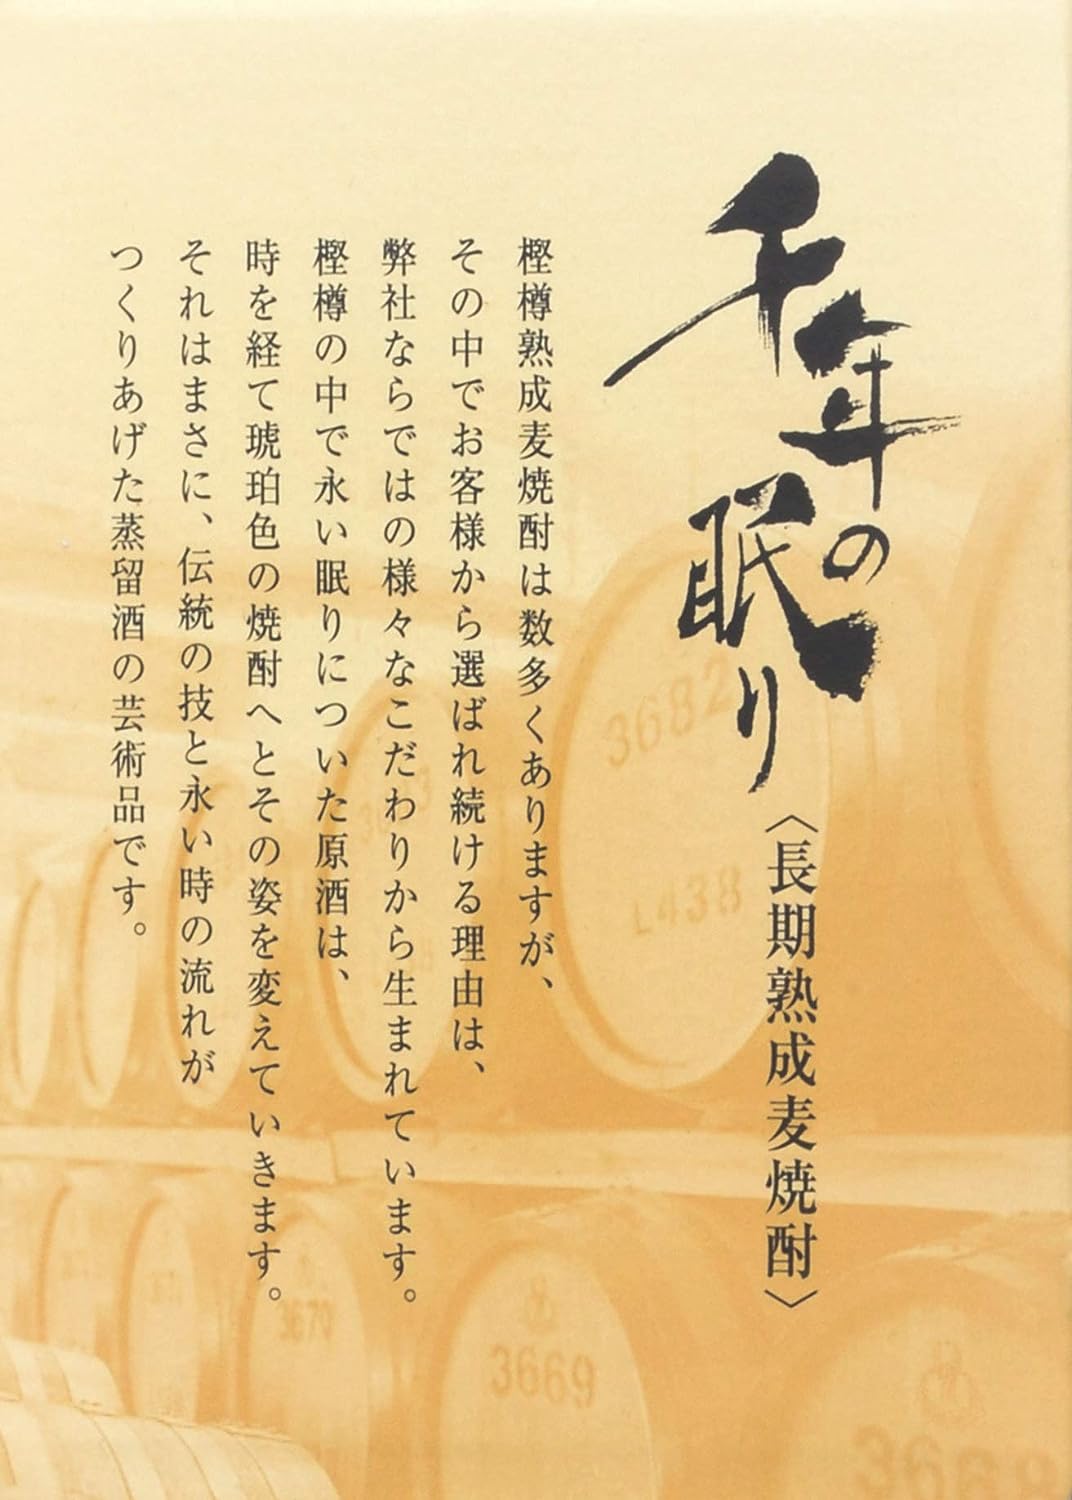 千年の眠り
〈長期熟成麦焼酎〉
樫樽熟成麦焼酎は数多くありますが、
その中でお客様から選ばれ続ける理由は、
弊社ならではの様々なこだわりから生まれています。
樫樽の中で永い眠りについた原酒は、
時を経て琥珀色の焼酎へとその姿を変えていきます。
それはまさに、伝統の技と永い時の流れが
つくりあげた蒸留酒の芸術品です。
3682
L438
3670
3669